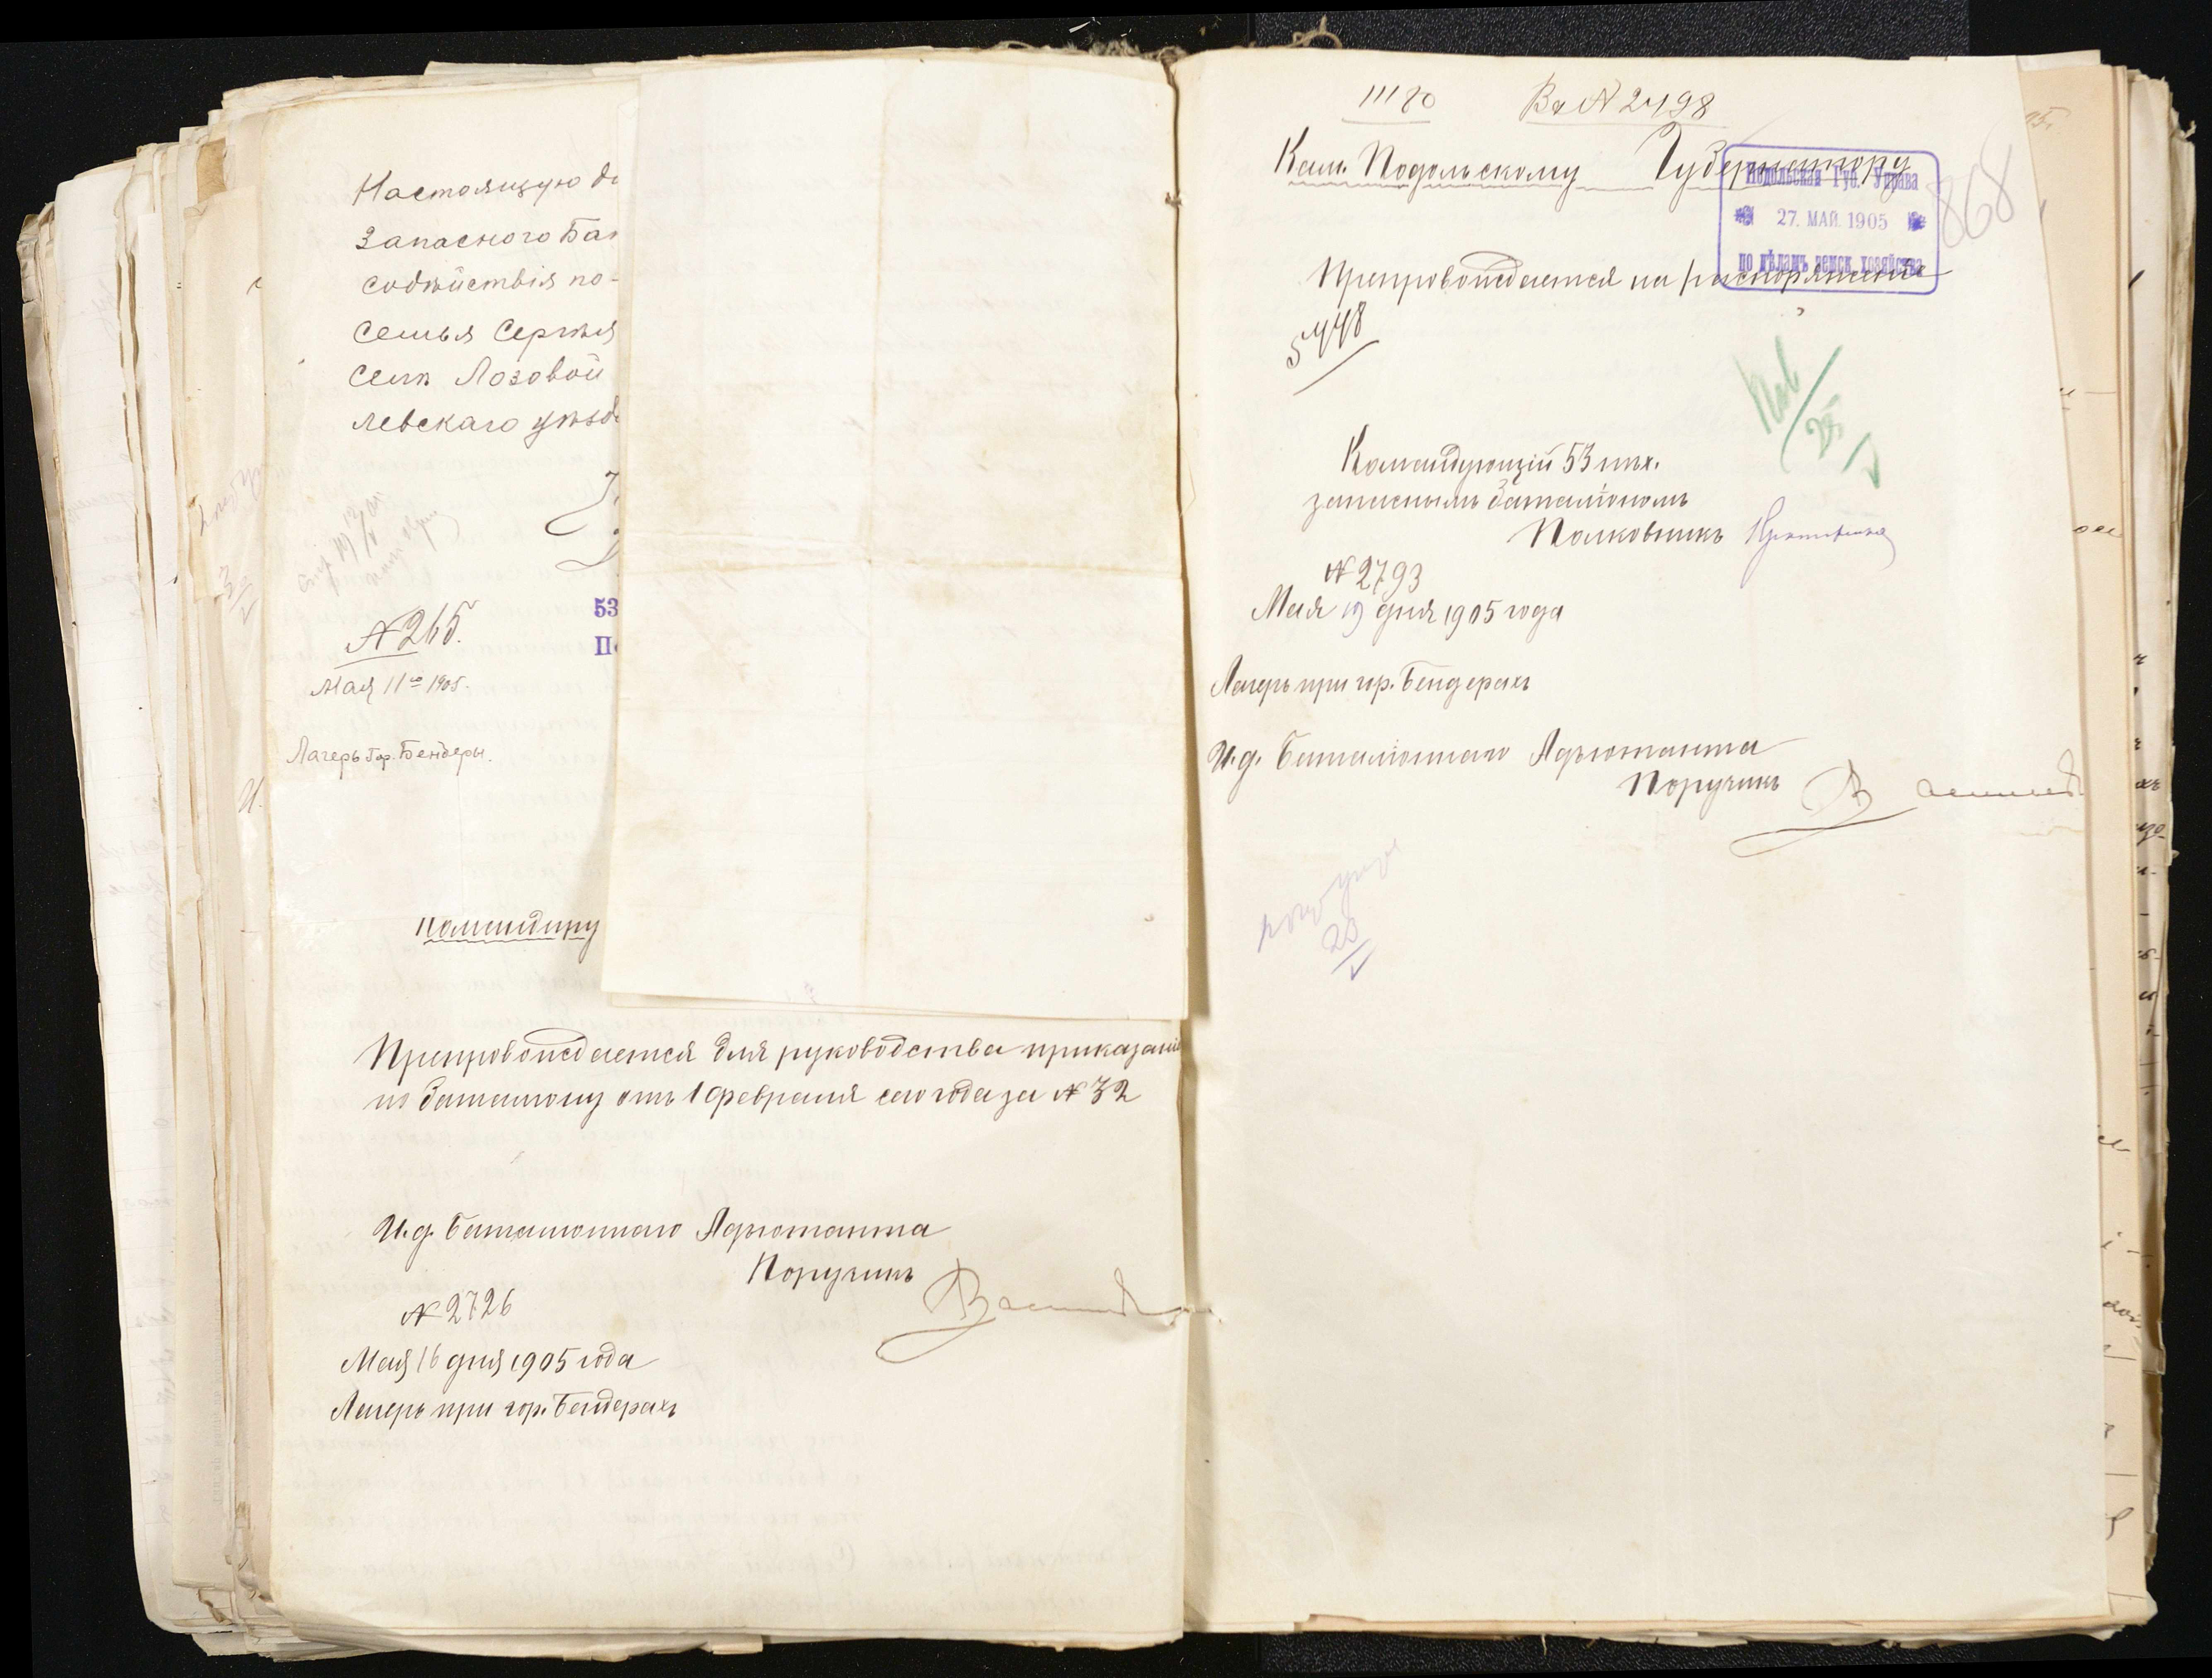 Настоящую
Запаснаго Бат
содѣйствія по-
семья Сергѣя
селѣ Лозовой
левскаго уѣзд
№ 265.
53
Мая 11го 1905.
Лагерь Гор. Бендеры.
Командиру
Препровождается для руководства приказаніе
по баталіону отъ 1 февраля сего года за № 32
И.д. Баталіоннаго Адъютанта
Поручикъ
№ 2726
Мая 16 дня 1905 года
Лагерь при гор. Бендерахъ
Вх № 2498
Кам. Подольскому Губернатору
Подольская Губ. Управа
27. МАЙ. 1905
по дѣламъ земск. хозяйства
868
Препровождается на распоряженіе
5448
Командующій 53 пѣх.
запаснымъ баталіономъ
Полковникъ
№ 2793
Мая 19 дня 1905 года
Лагерь при гор. Бендерахъ
И.д. Баталіоннаго Адъютанта
Поручикъ